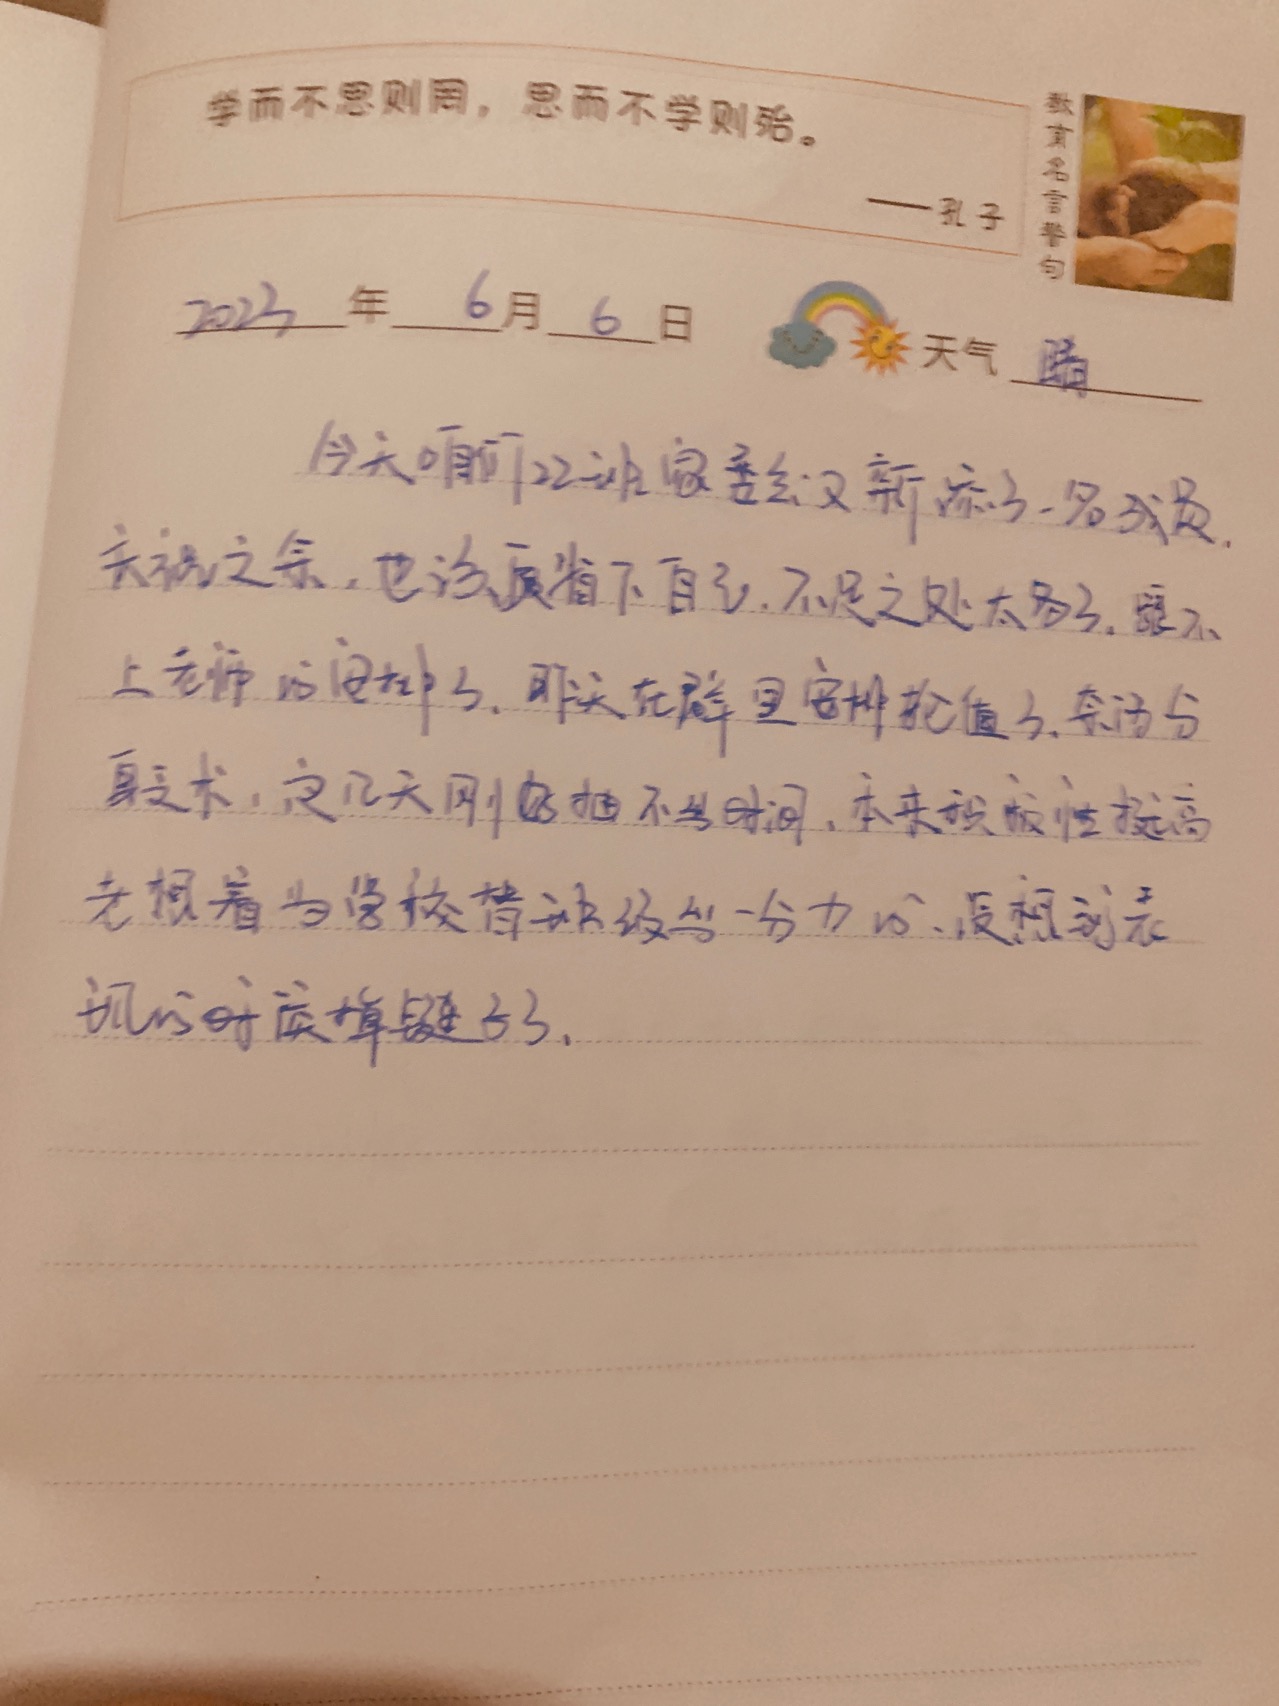 学而不思则罔，思而不学则殆。
——孔子
教育名言警句
2023年 6月 6日 天气 晴
今天咱们22班家委会又新添了一名成员，
庆祝之余，也该反省下自己，不足之处太多了，跟不
上老师的安排了，昨天在群里安排轮值了，奈何
手术，这几天刚好抽不出时间，本来积极性挺高
老想着为学校替班级出一份力的，没想到表
现的时候掉链子了。